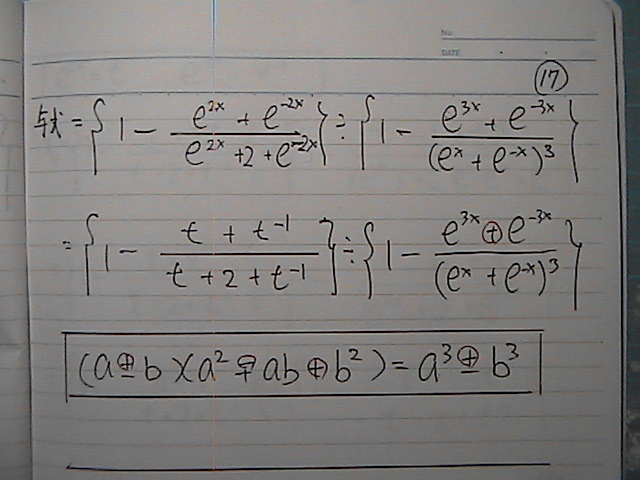 No.
DATE
⑰
与式 = { 1 - (e^{2x} + e^{-2x}) / (e^{2x} + 2 + e^{-2x}) } ÷ { 1 - (e^{3x} + e^{-3x}) / (e^x + e^{-x})^3 }
= { 1 - (t + t^{-1}) / (t + 2 + t^{-1}) } ÷ { 1 - (e^{3x} ⊕ e^{-3x}) / (e^x + e^{-x})^3 }
(a ± b)(a^2 ∓ ab ⊕ b^2) = a^3 ± b^3